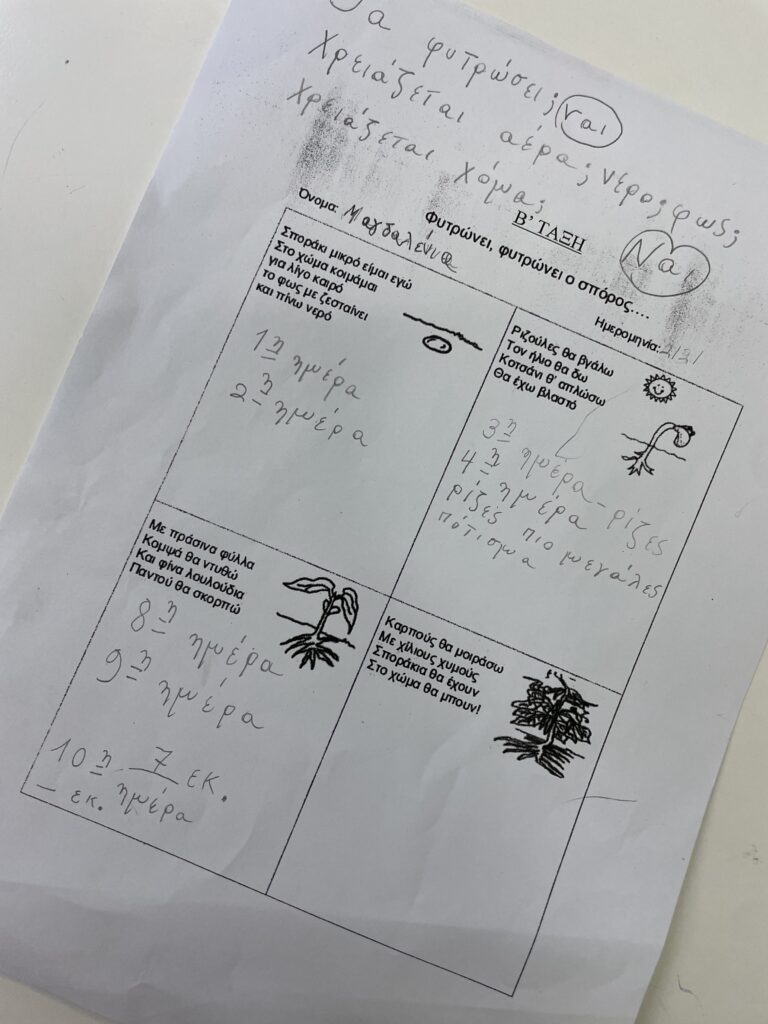 Θα φυτρώσει; ναι
Χρειάζεται αέρα; νερο; φως;
Χρειάζεται χόμα; Να
Β' ΤΑΞΗ
Όνομα: Μαγδαλένια
Φυτρώνει, φυτρώνει ο σπόρος....
Ημερομηνία: 2131
Σποράκι μικρό είμαι εγώ
Στο χώμα κοιμάμαι
για λίγο καιρό
το φως με ζεσταίνει
και πίνω νερό
1η ημέρα
2η ημέρα
Ριζούλες θα βγάλω
Τον ήλιο θα δω
Κοτσάνι θ' απλώσω
Θα έχω βλαστό
3η ημέρα - ρίζες
4η ημέρα
ρίζες πιο μεγάλες
πότισμα
Με πράσινα φύλλα
Κομψά θα ντυθώ
Και φίνα λουλούδια
Παντού θα σκορπώ
8η ημέρα
9η ημέρα
7 εκ.
10η ημέρα
– εκ.
Καρπούς θα μοιράσω
Με χίλιους χυμούς
Σποράκια θα έχουν
Στο χώμα θα μπουν!